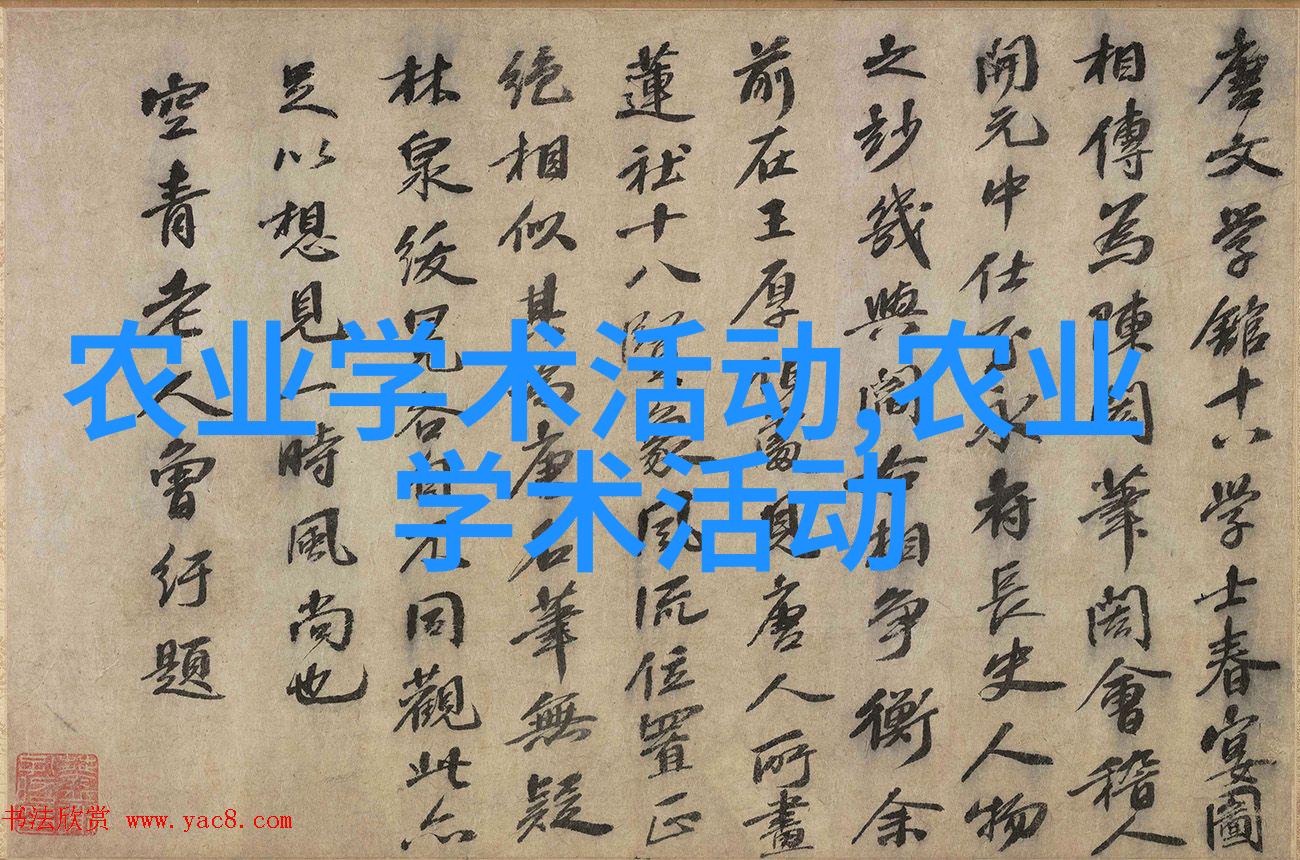 唐文学館十八学士春宴圖
相傳為陳閎筆閎會稽人
開元中仕永府長史人物
之妙幾與閻令相爭衡余
前在王厚見唐人所畫
蓮社十八賢象風流位置正
絶相似其為唐名筆無疑
林泉同觀此亦
足以想見一時風尚也
空青老人曾紆題
农业学术活动,农业
学术活动
书法欣赏 www.yac8.com